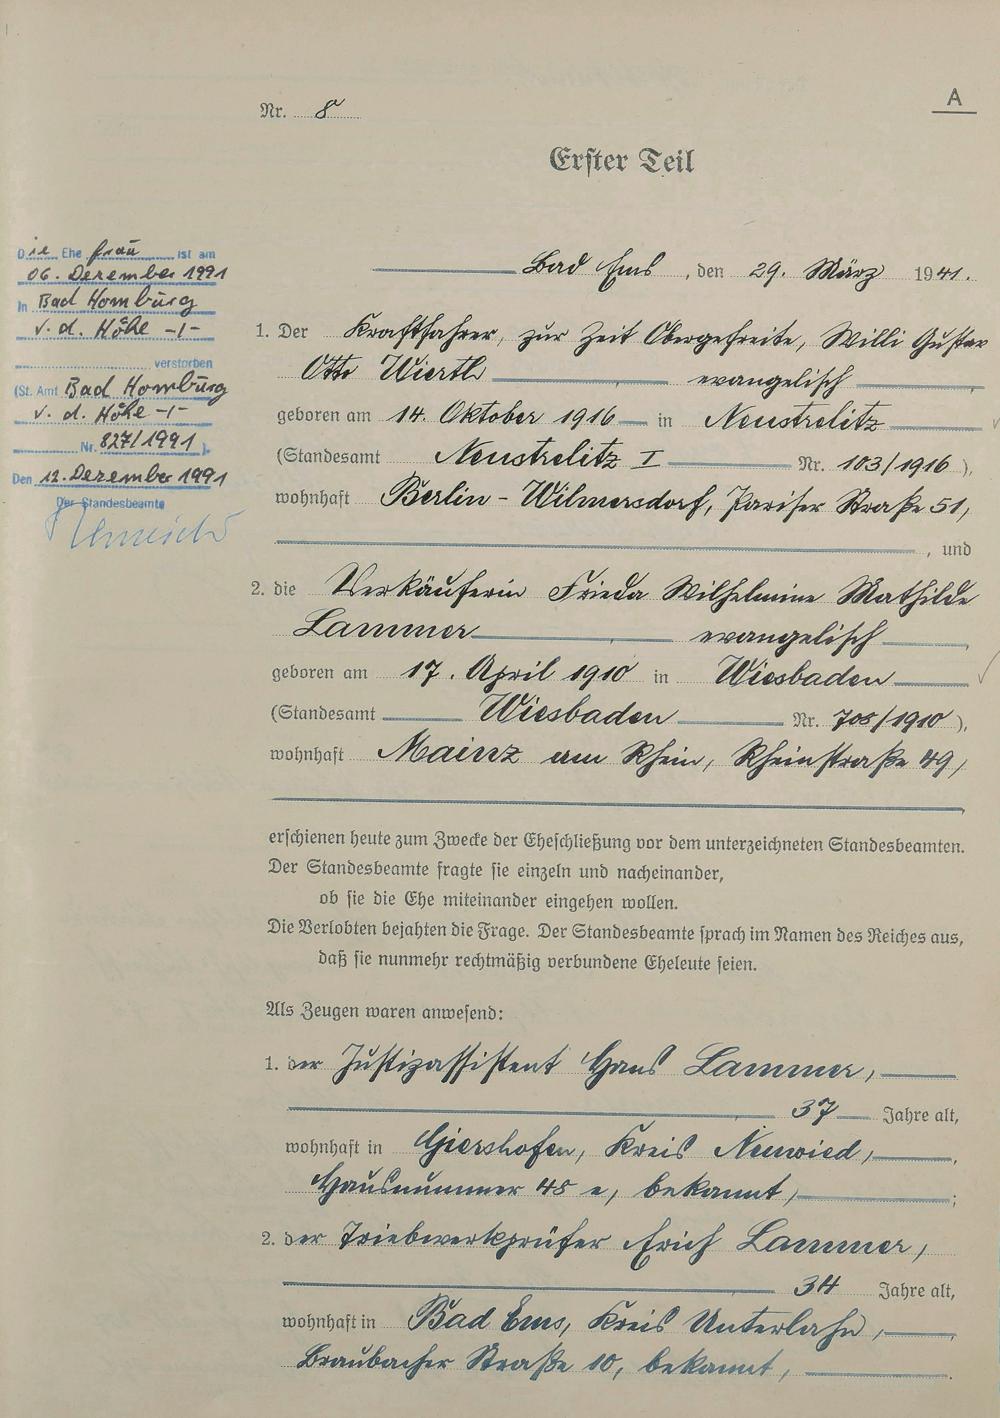 A
Nr. 8
Erster Teil
Die Ehe frau ist am
06. Dezember 1991
in Bad Homburg
v. d. Höhe -1-
verstorben
(St. Amt Bad Homburg
v. d. Höhe -1-
Nr. 827/1991 ).
Den 12. Dezember 1991
Der Standesbeamte
Bad Ems, den 29. März 1941.
1. Der Kraftfahrer, zur Zeit Obergefreite, Willi Gustav
Otto Wiertl evangelisch
geboren am 14. Oktober 1916 in Neustrelitz
(Standesamt Neustrelitz I Nr. 103/1916 ),
wohnhaft Berlin - Wilmersdorf, Pariser Straße 51,
, und
2. die Verkäuferin Frieda Wilhelmine Mathilde
Lammer evangelisch
geboren am 17. April 1910 in Wiesbaden
(Standesamt Wiesbaden Nr. 708/1910 ),
wohnhaft Mainz am Rhein, Rheinstraße 49,
erschienen heute zum Zwecke der Eheschließung vor dem unterzeichneten Standesbeamten.
Der Standesbeamte fragte sie einzeln und nacheinander,
ob sie die Ehe miteinander eingehen wollen.
Die Verlobten bejahten die Frage. Der Standesbeamte sprach im Namen des Reiches aus,
daß sie nunmehr rechtmäßig verbundene Eheleute seien.
Als Zeugen waren anwesend:
1. der Justizassistent Hans Lammer,
37 Jahre alt,
wohnhaft in Giershofen, Kreis Neuwied,
Hausnummer 48 e, bekannt, ;
2. der Triebwerkprüfer Erich Lammer,
34 Jahre alt,
wohnhaft in Bad Ems, Kreis Unterlahn,
Braubacher Straße 10, bekannt, .